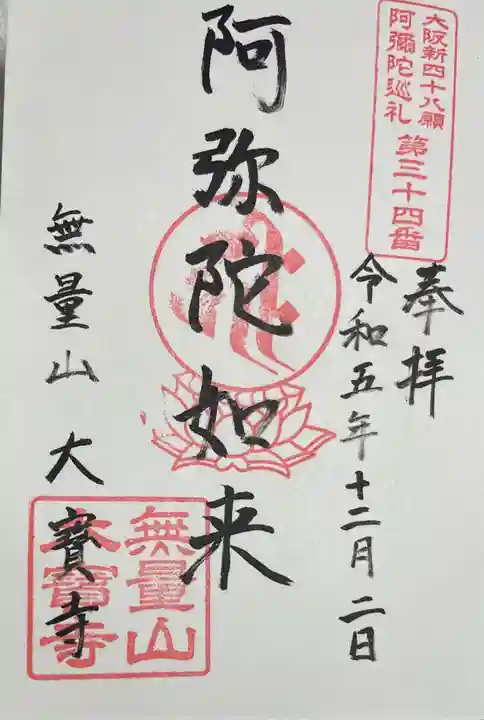 大阪新四十八願
阿彌陀巡礼 第三十四番
奉拝
令和五年十二月二日
阿弥陀如来
無量山 大寳寺
無量山
大寳寺